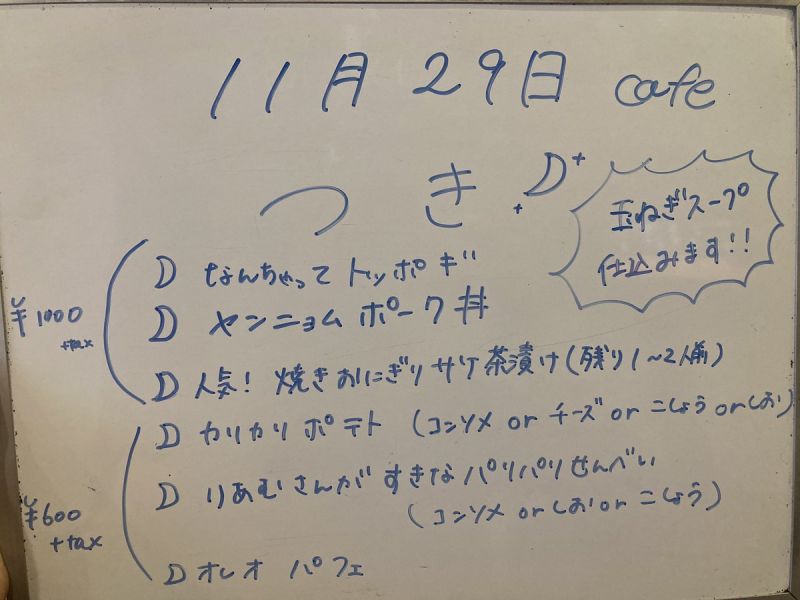 11月29日 cafe
つき
玉ねぎスープ
仕込みます!!
¥1000
+tax
なんちゃってトッポギ
ヤンニョムポーク丼
人気! 焼きおにぎりサケ茶漬け(残り1~2人前)
¥600
+tax
カリカリポテト (コンソメ or チーズ or こしょう or しお)
りあむさんがすきなパリパリせんべい
(コンソメ or しお or こしょう)
オレオ パフェ